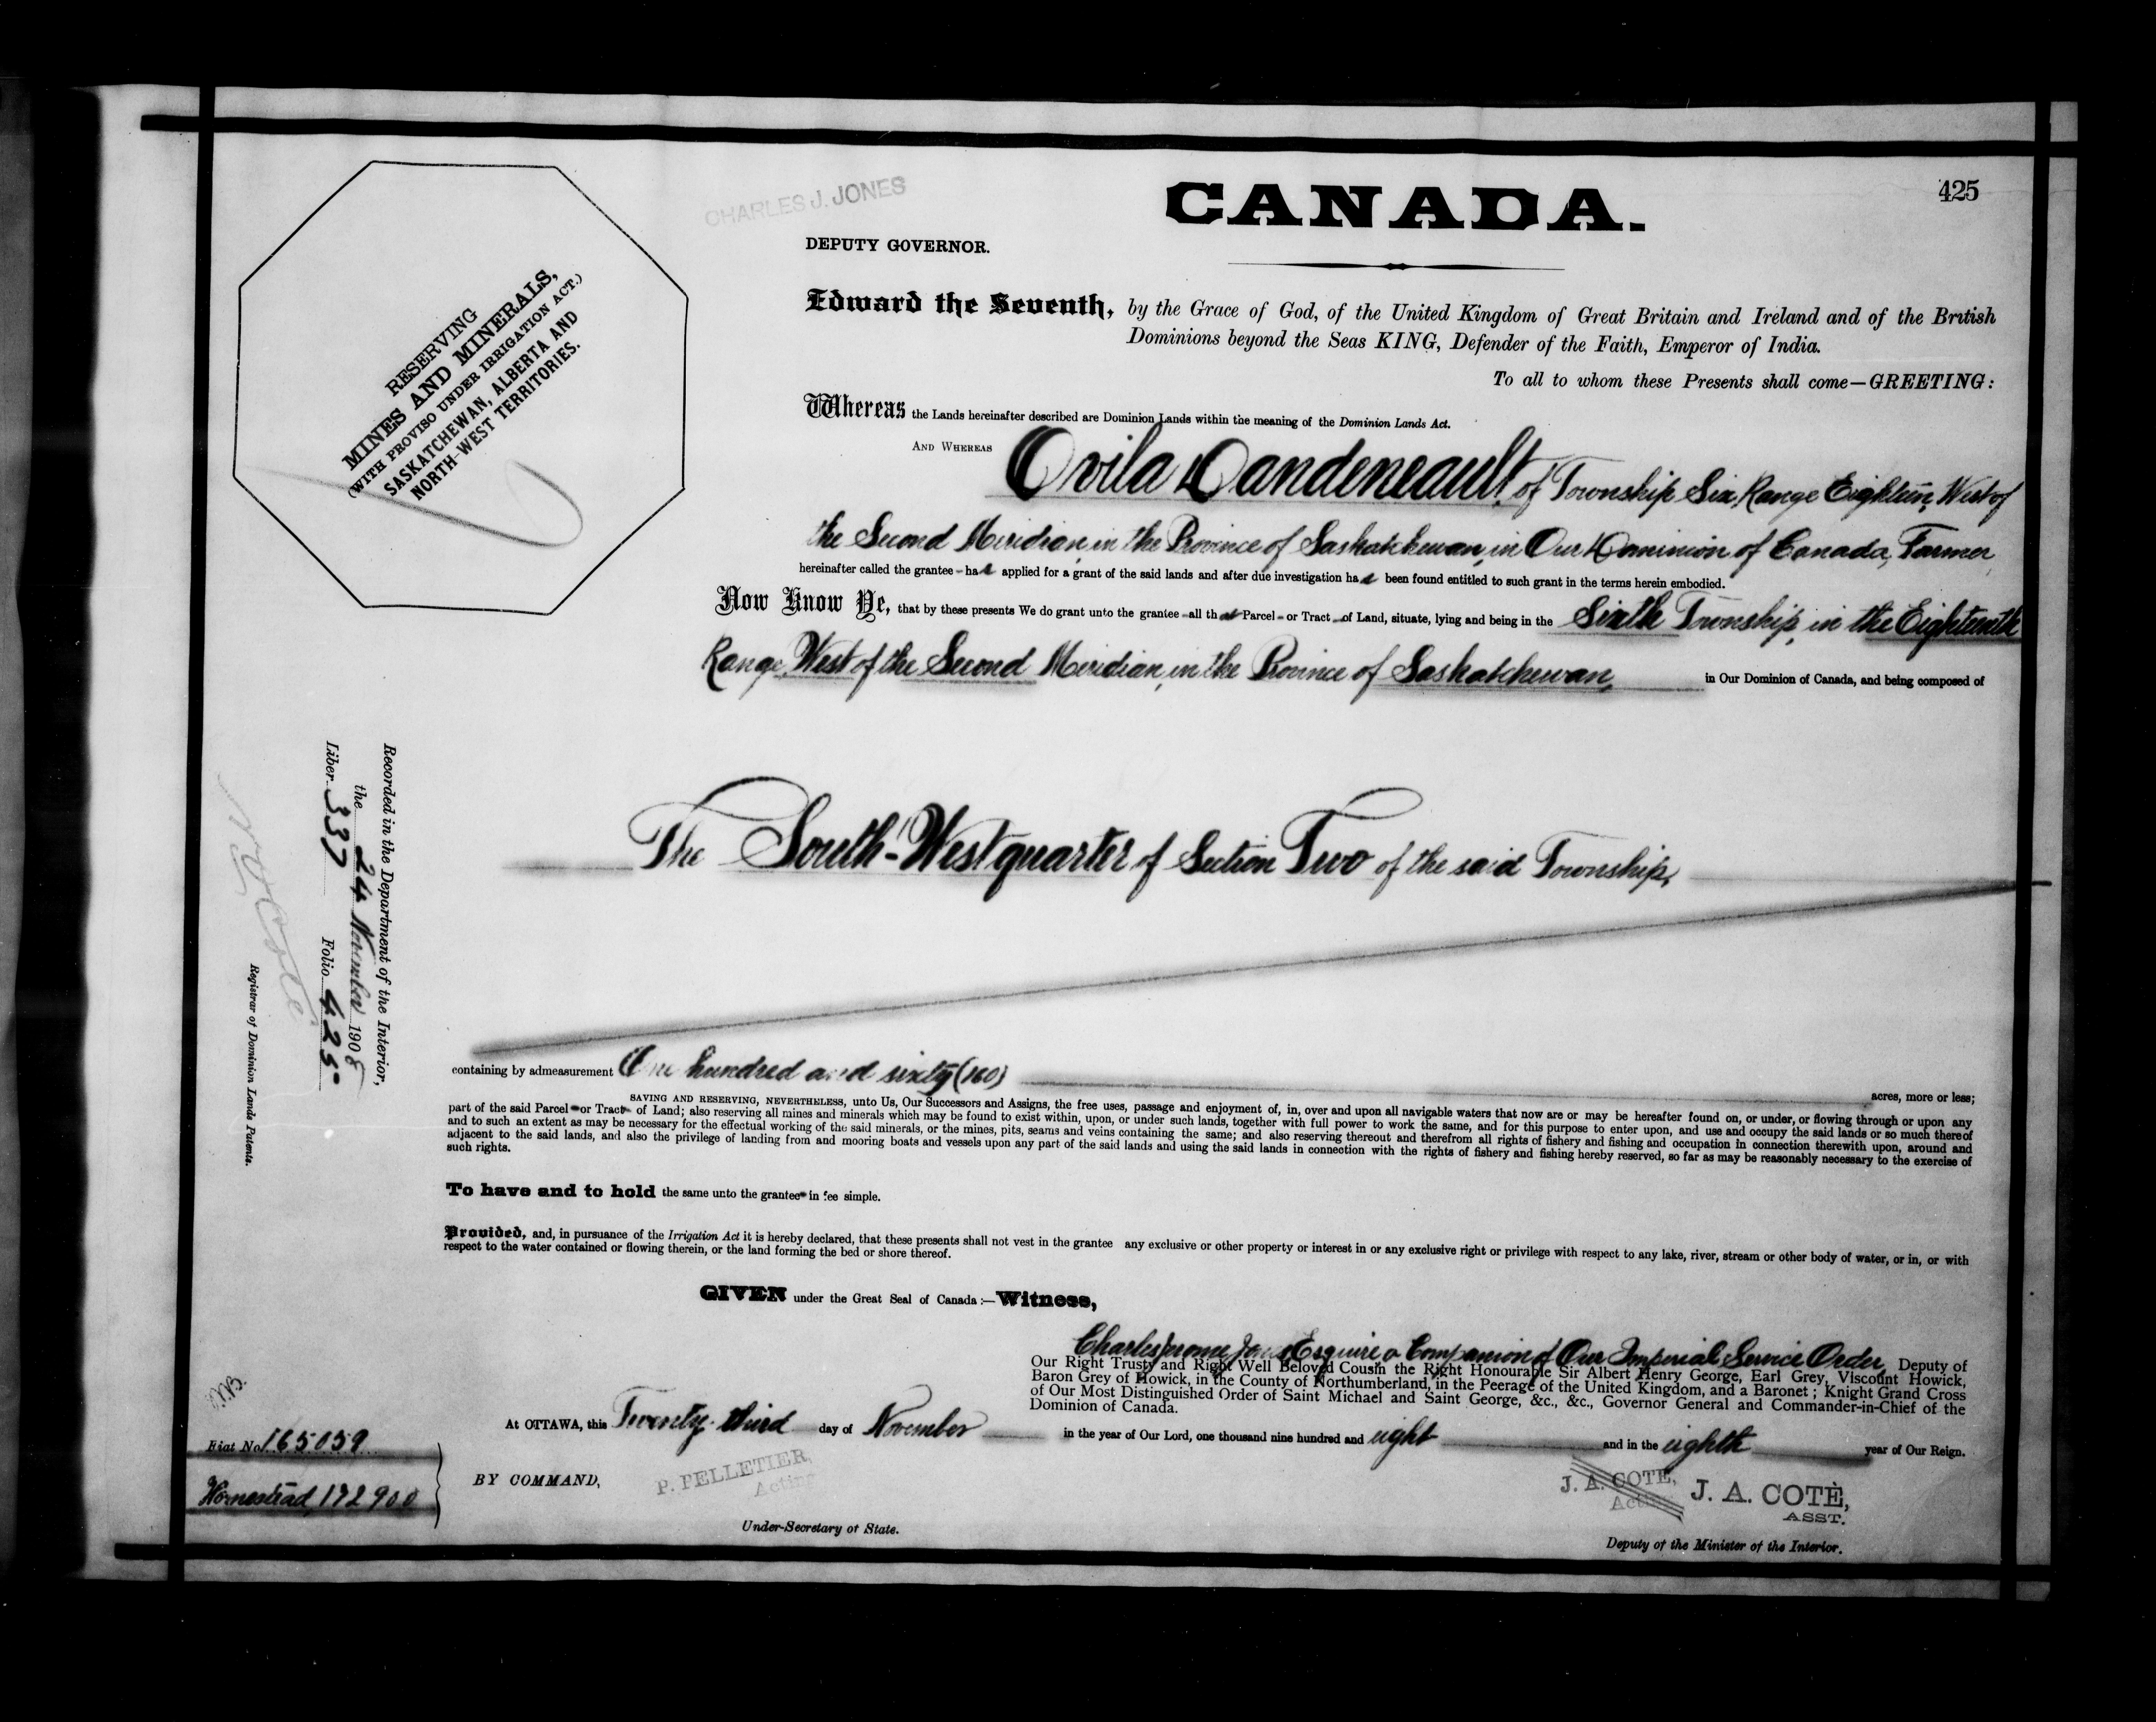 425
CHARLES J. JONES
CANADA.
DEPUTY GOVERNOR.
RESERVING
MINES AND MINERALS,
(WITH PROVISO UNDER IRRIGATION ACT.)
SASKATCHEWAN, ALBERTA AND
NORTH-WEST TERRITORIES.
Edward the Seventh, by the Grace of God, of the United Kingdom of Great Britain and Ireland and of the British
Dominions beyond the Seas KING, Defender of the Faith, Emperor of India.
To all to whom these Presents shall come—GREETING:
Whereas the Lands hereinafter described are Dominion Lands within the meaning of the Dominion Lands Act.
AND WHEREAS Ovila Dandeneault, of Township Six, Range Eighteen, West of
the Second Meridian, in the Province of Saskatchewan, in Our Dominion of Canada, Farmer,
hereinafter called the grantee - has applied for a grant of the said lands and after due investigation has been found entitled to such grant in the terms herein embodied.
Now Know Ye, that by these presents We do grant unto the grantee - all that Parcel - or Tract - of Land, situate, lying and being in the Sixth Township, in the Eighteenth
Range, West of the Second Meridian, in the Province of Saskatchewan, in Our Dominion of Canada, and being composed of
The South-West quarter of Section Two of the said Township,
Recorded in the Department of the Interior,
the 24 November 1908
Liber 337 Folio 425
N. O. Coté
Registrar of Dominion Lands Patents.
containing by admeasurement One hundred and sixty (160) acres, more or less;
SAVING AND RESERVING, NEVERTHELESS, unto Us, Our Successors and Assigns, the free uses, passage and enjoyment of, in, over and upon all navigable waters that now are or may be hereafter found on, or under, or flowing through or upon any
part of the said Parcel - or Tract - of Land; also reserving all mines and minerals which may be found to exist within, upon, or under such lands, together with full power to work the same, and for this purpose to enter upon, and use and occupy the said lands or so much thereof
and to such an extent as may be necessary for the effectual working of the said minerals, or the mines, pits, seams and veins containing the same; and also reserving thereout and therefrom all rights of fishery and fishing and occupation in connection therewith upon, around and
adjacent to the said lands, and also the privilege of landing from and mooring boats and vessels upon any part of the said lands and using the said lands in connection with the rights of fishery and fishing hereby reserved, so far as may be reasonably necessary to the exercise of
such rights.
To have and to hold the same unto the grantee - in fee simple.
Provided, and, in pursuance of the Irrigation Act it is hereby declared, that these presents shall not vest in the grantee any exclusive or other property or interest in or any exclusive right or privilege with respect to any lake, river, stream or other body of water, or in, or with
respect to the water contained or flowing therein, or the land forming the bed or shore thereof.
GIVEN under the Great Seal of Canada :—Witness,
Charles Jerome Jones Esquire a Companion of Our Imperial Service Order, Deputy of
Our Right Trusty and Right Well Beloved Cousin the Right Honourable Sir Albert Henry George, Earl Grey, Viscount Howick,
Baron Grey of Howick, in the County of Northumberland, in the Peerage of the United Kingdom, and a Baronet; Knight Grand Cross
of Our Most Distinguished Order of Saint Michael and Saint George, &c., &c., Governor General and Commander-in-Chief of the
Dominion of Canada.
At OTTAWA, this Twenty-third day of November in the year of Our Lord, one thousand nine hundred and eight and in the eighth year of Our Reign.
Fiat No. 165059
Homestead, 192900
BY COMMAND,
P. PELLETIER,
Acting
Under-Secretary of State.
J. A. COTE,
Acting
J. A. COTÈ,
ASST.
Deputy of the Minister of the Interior.